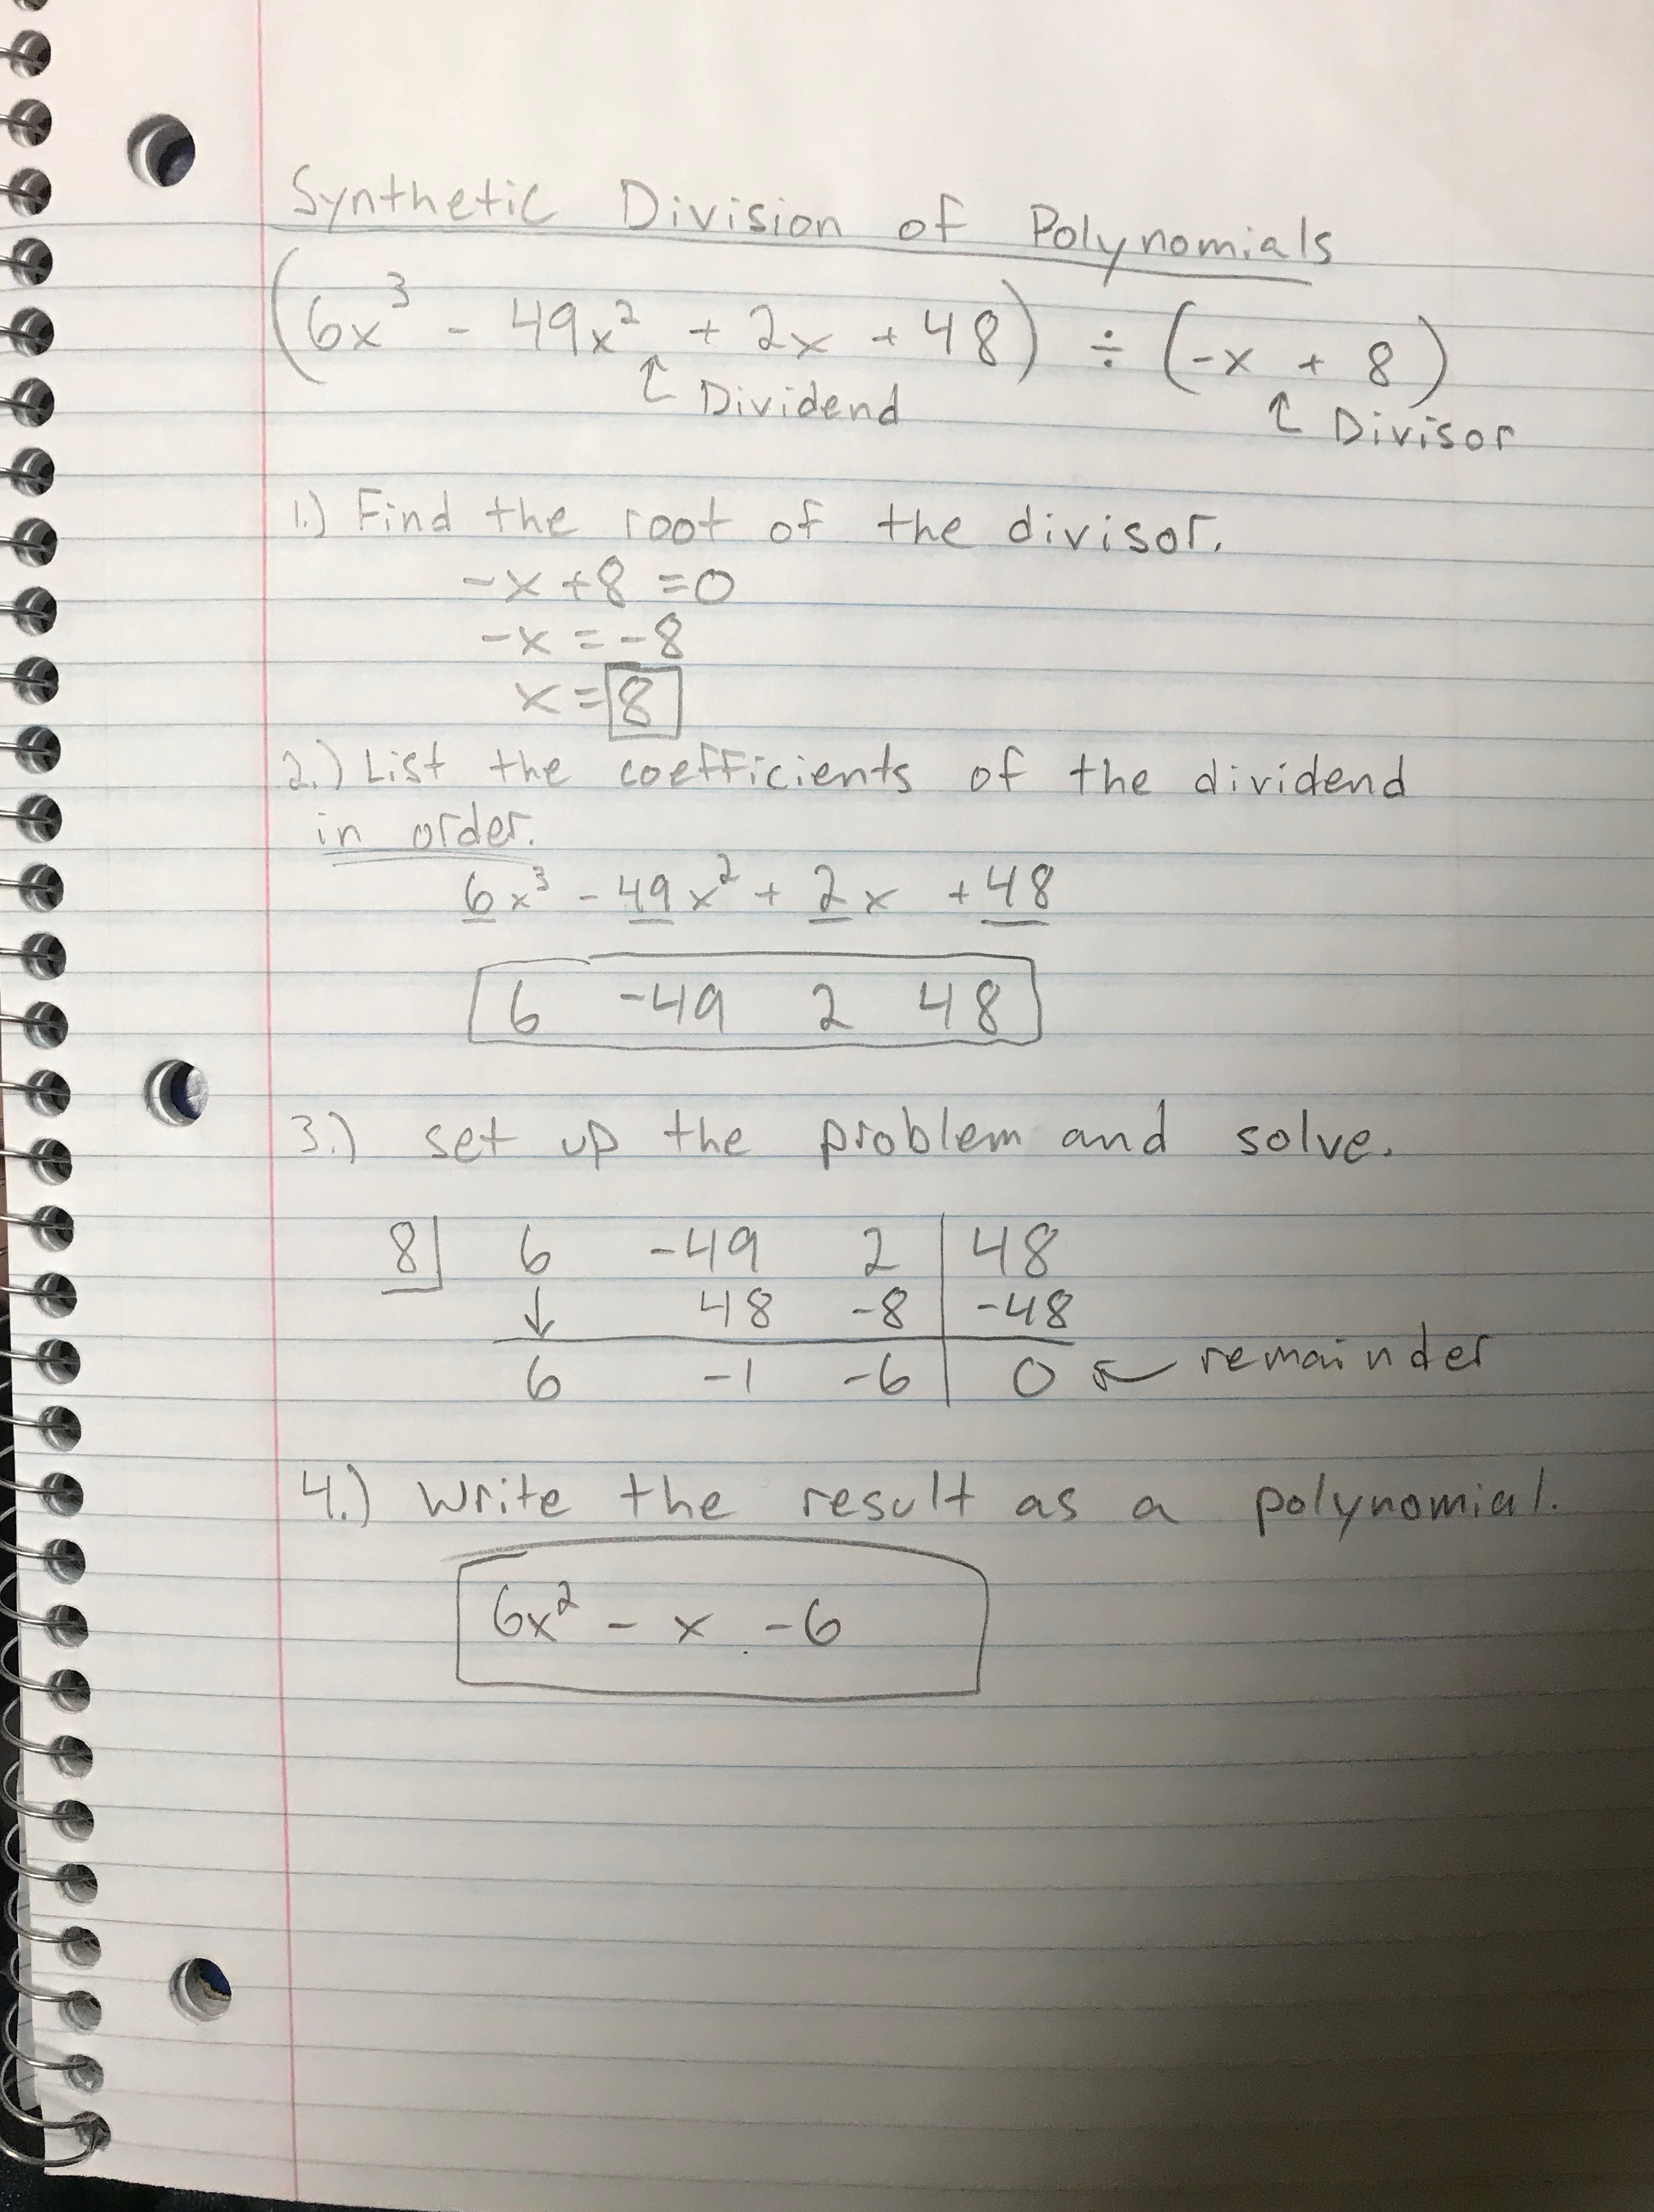 Synthetic Division of Polynomials
(6x³ - 49x² + 2x + 48) ÷ (-x + 8)
↑ Dividend ↑ Divisor
1.) Find the root of the divisor.
-x + 8 = 0
-x = -8
x = 8
2.) List the coefficients of the dividend
in order.
6x³ - 49x² + 2x + 48
6 -49 2 48
3.) set up the problem and solve.
8 6 -49 2 48
↓ 48 -8 -48
6 -1 -6 0 ← remainder
4.) Write the result as a polynomial.
6x² - x - 6